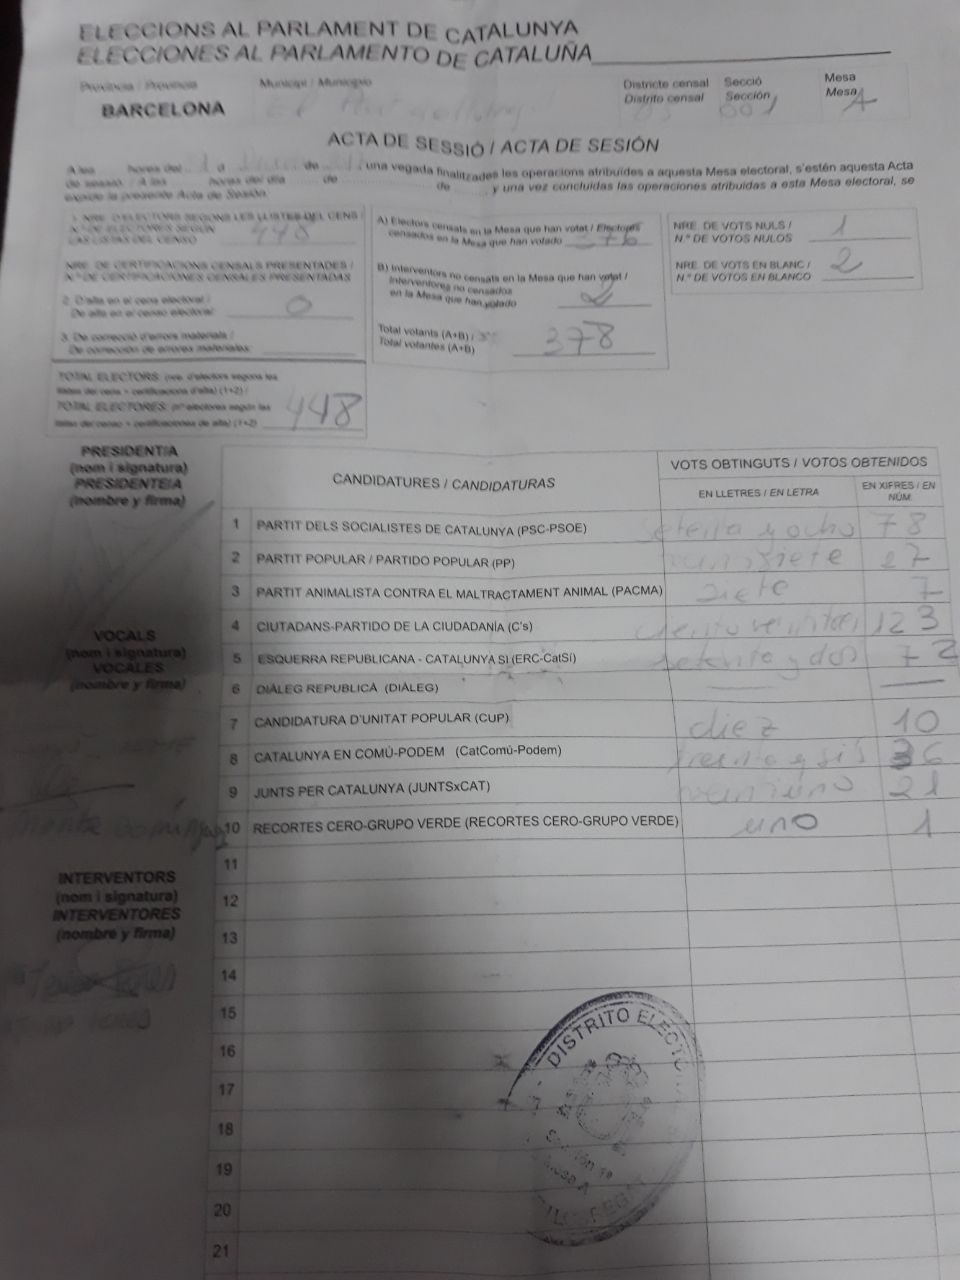 ELECCIONS AL PARLAMENT DE CATALUNYA
ELECCIONES AL PARLAMENTO DE CATALUÑA
Província / Provincia
Municipi / Municipio
Districte censal
Distrito censal
Secció
Sección
Mesa
Mesa
BARCELONA
El Prat
001
A
ACTA DE SESSIÓ / ACTA DE SESIÓN
A les hores del a de , una vegada finalitzades les operacions atribuïdes a aquesta Mesa electoral, s'estén aquesta Acta
de sessió. / A las horas del día de de y una vez concluidas las operaciones atribuidas a esta Mesa electoral, se
expide la presente Acta de Sesión.
1. NRE. D'ELECTORS SEGONS LES LLISTES DEL CENS /
N.º DE ELECTORES SEGÚN
LAS LISTAS DEL CENSO 448
NRE. DE CERTIFICACIONS CENSALS PRESENTADES /
N.º DE CERTIFICACIONES CENSALES PRESENTADAS
2. D'alta en el cens electoral /
De alta en el censo electoral: 0
3. De correcció d'errors materials /
De corrección de errores materiales:
TOTAL ELECTORS: (nre. d'electors segons les
llistes del cens + certificacions d'alta) (1+2) /
TOTAL ELECTORES: (nº electores según las
listas del censo + certificaciones de alta) (1+2) 448
A) Electors censats en la Mesa que han votat / Electores
censados en la Mesa que han votado 376
B) Interventors no censats en la Mesa que han votat /
Interventores no censados
en la Mesa que han votado 2
Total votants (A+B) /
Total votantes (A+B) 378
NRE. DE VOTS NULS /
N.º DE VOTOS NULOS 1
NRE. DE VOTS EN BLANC /
N.º DE VOTOS EN BLANCO 2
PRESIDENT/A
(nom i signatura)
PRESIDENTE/A
(nombre y firma)
VOCALS
(nom i signatura)
VOCALES
(nombre y firma)
INTERVENTORS
(nom i signatura)
INTERVENTORES
(nombre y firma)
CANDIDATURES / CANDIDATURAS
VOTS OBTINGUTS / VOTOS OBTENIDOS
EN LLETRES / EN LETRA
EN XIFRES / EN
NÚM.
1 PARTIT DELS SOCIALISTES DE CATALUNYA (PSC-PSOE) setenta y ocho 78
2 PARTIT POPULAR / PARTIDO POPULAR (PP) veintisiete 27
3 PARTIT ANIMALISTA CONTRA EL MALTRACTAMENT ANIMAL (PACMA) siete 7
4 CIUTADANS-PARTIDO DE LA CIUDADANÍA (C's) ciento veintitres 123
5 ESQUERRA REPUBLICANA - CATALUNYA SÍ (ERC-CatSí) setenta y dos 72
6 DIÀLEG REPUBLICÀ (DIÀLEG) —— ——
7 CANDIDATURA D'UNITAT POPULAR (CUP) diez 10
8 CATALUNYA EN COMÚ-PODEM (CatComú-Podem) treinta y sis 36
9 JUNTS PER CATALUNYA (JUNTSxCAT) veintiuno 21
10 RECORTES CERO-GRUPO VERDE (RECORTES CERO-GRUPO VERDE) uno 1
11
12
13
14
15
16
17
18
19
20
21
DISTRITO ELECTO
Sección
Mesa A
LLOBREGAT